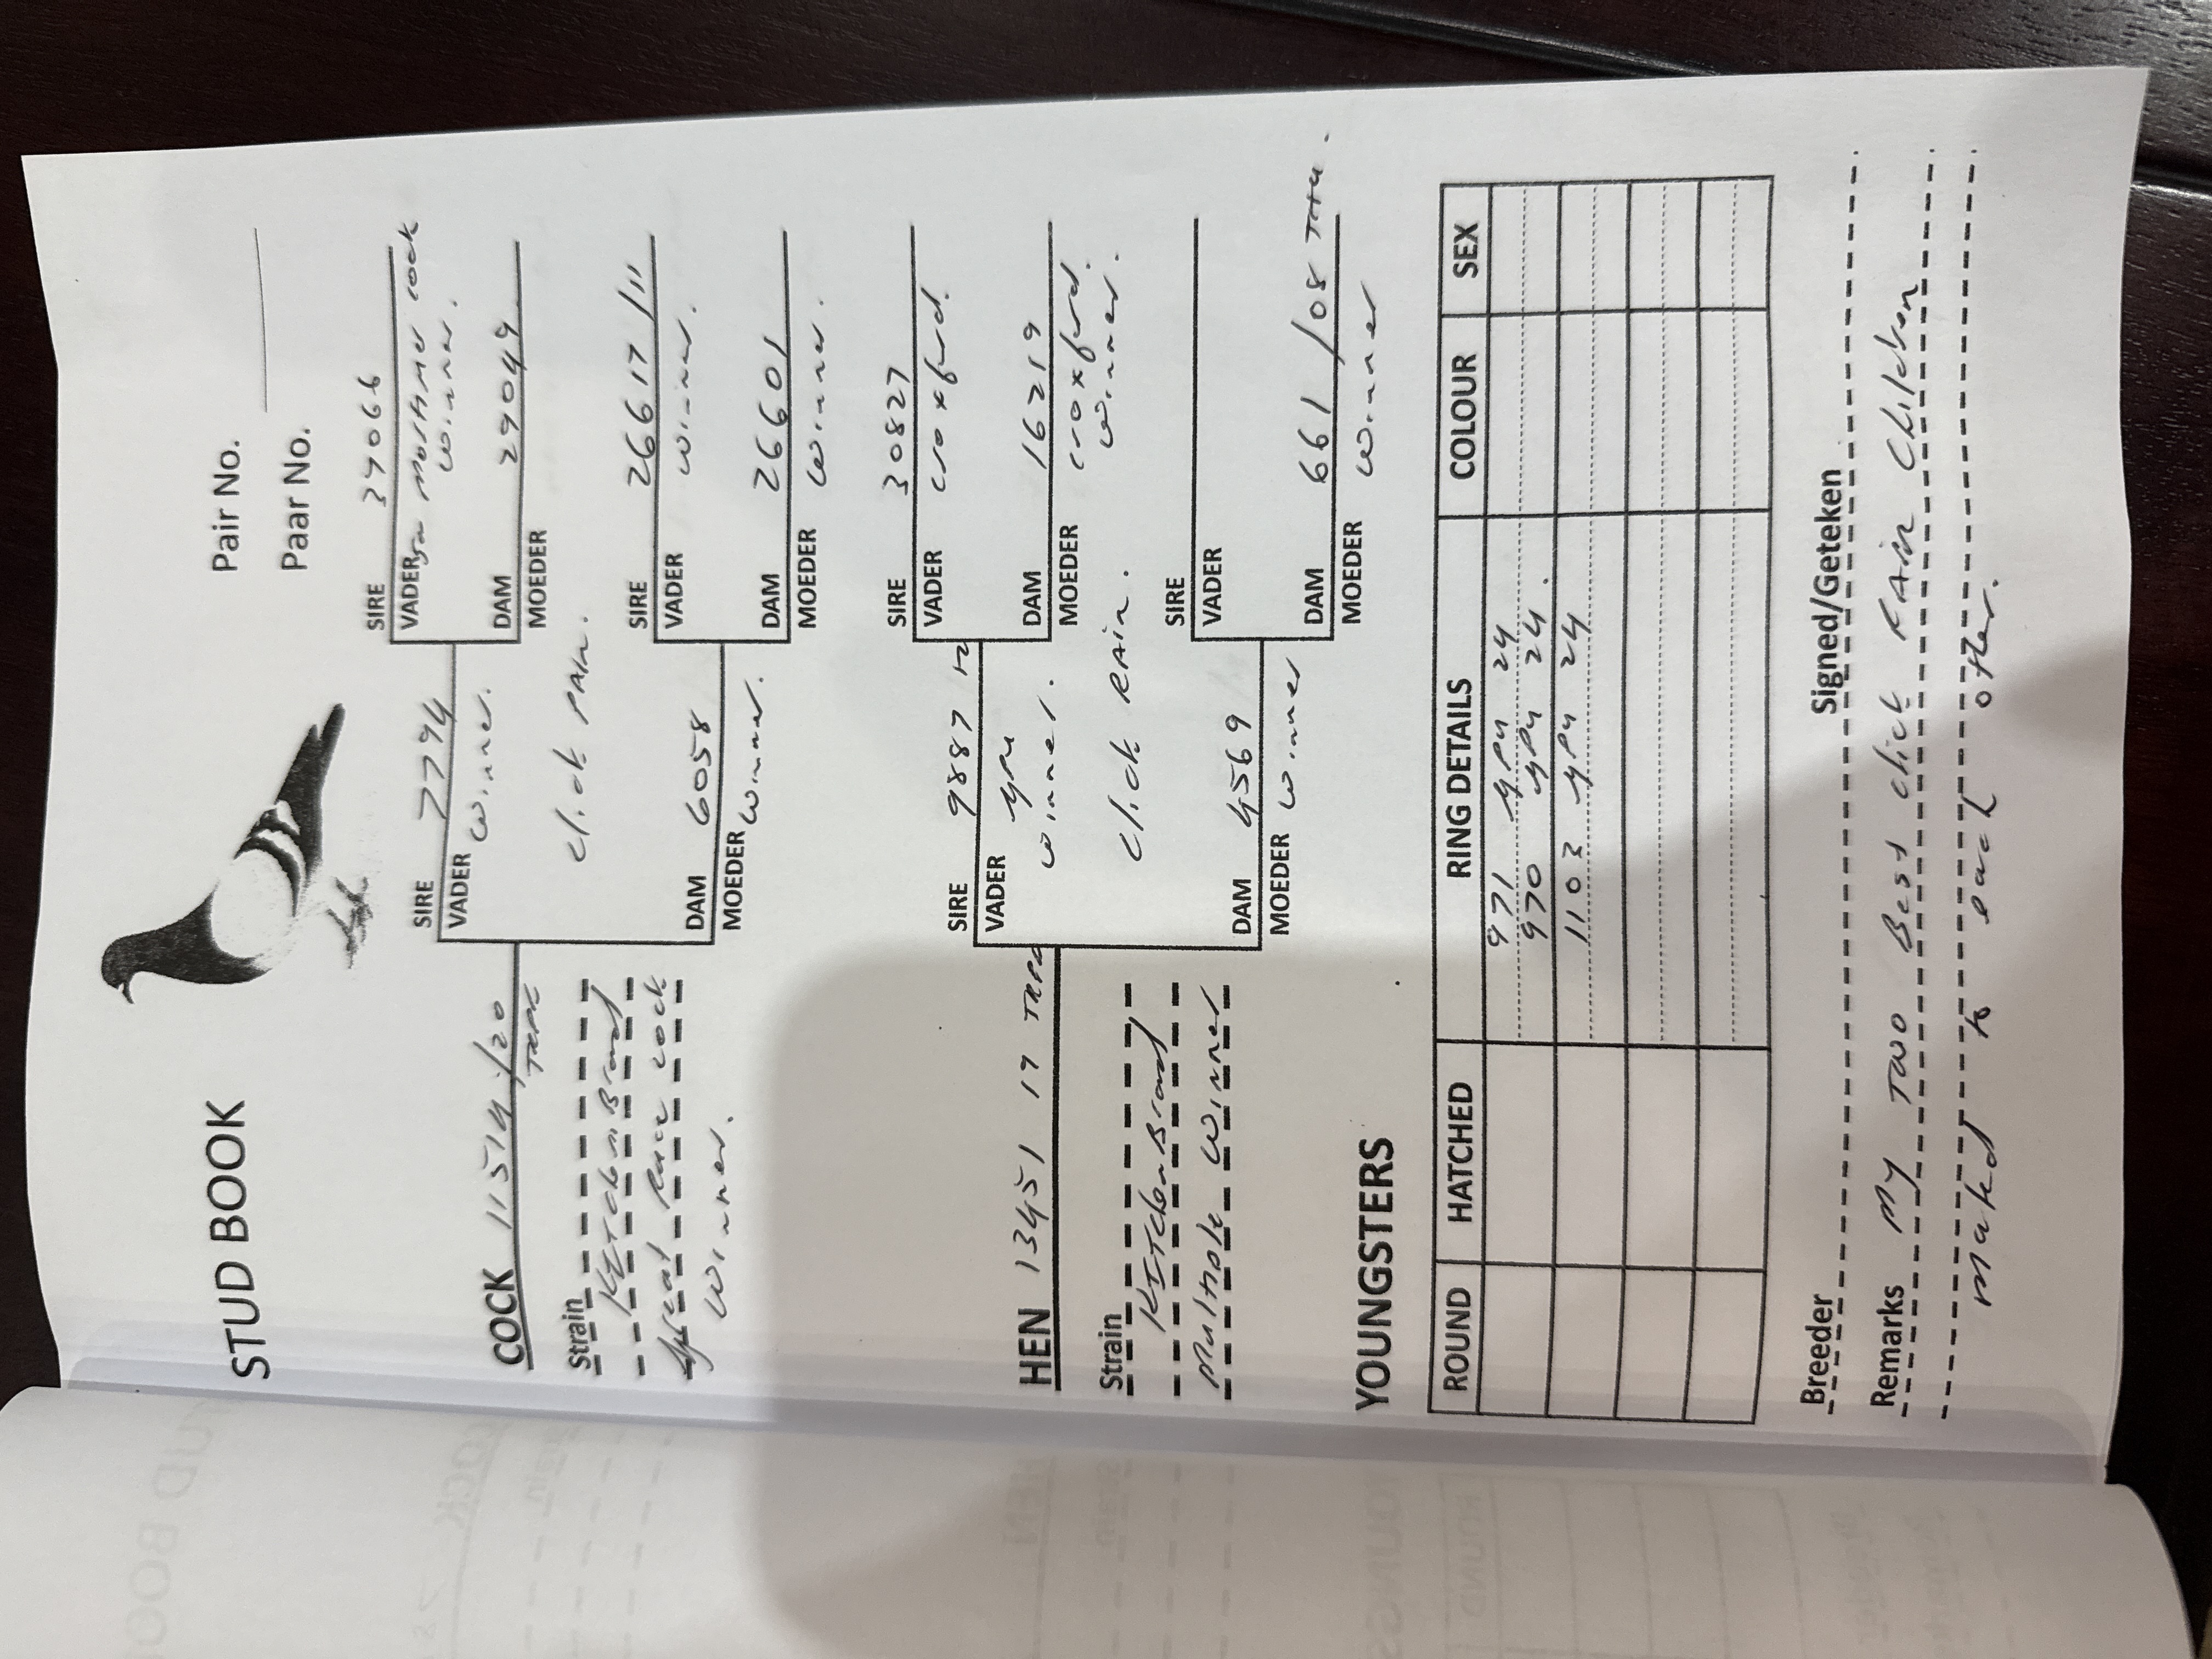 STUD BOOK
Pair No.
Paar No.
COCK 11514/20
TRPC
Strain
KitchenBrand
special race cock
winner.
SIRE 7794
VADER winner.
click PAIR.
DAM 6058
MOEDER winner.
SIRE 37066
VADER cock
winner.
DAM 29049
MOEDER
SIRE 26617/11
VADER winner.
DAM 26601
MOEDER winner.
HEN 13451 17 TRPC
Strain
KitchenBrand
Multiple winner
SIRE 9887 12
VADER YPU
winner.
click PAIR.
DAM 4569
MOEDER winner
SIRE 30827
VADER croxford.
DAM 16219
MOEDER croxford.
winner.
SIRE
VADER
DAM 661/08
MOEDER winner
YOUNGSTERS
ROUND HATCHED RING DETAILS COLOUR SEX
971 YPU 24
970 YPU 24.
1103 YPU 24
Breeder Signed/Geteken
Remarks My Two Best click PAIR children
mated to each other.